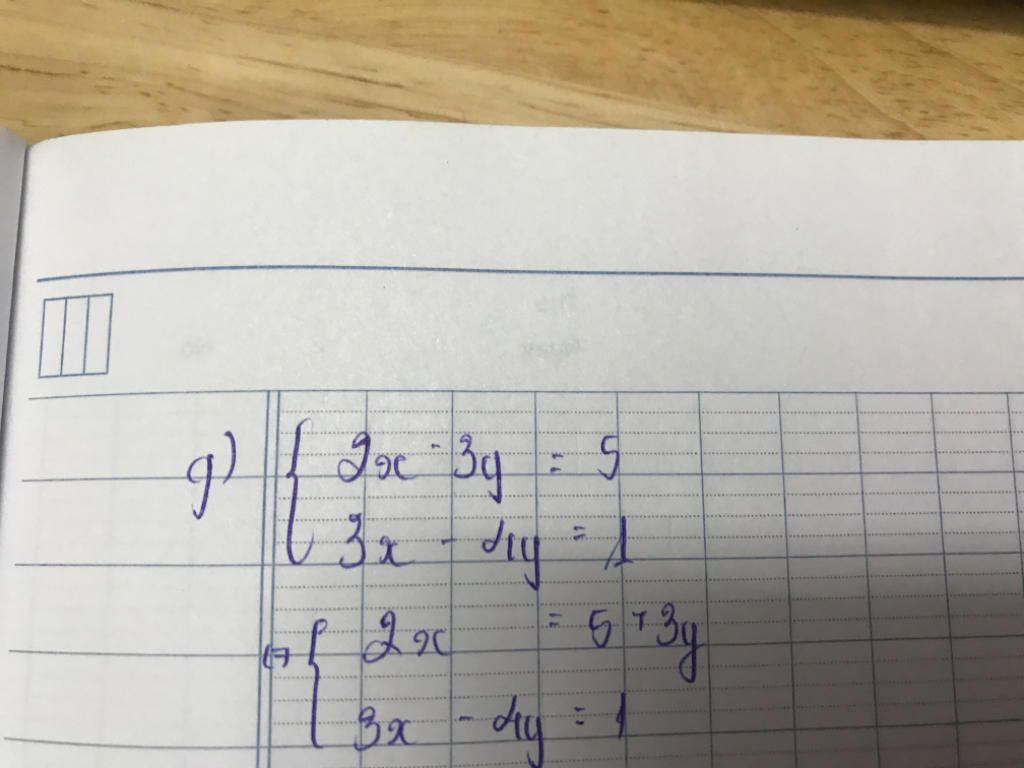 g) { 2x - 3y = 5
3x - 4y = 1
<=> { 2x = 5 + 3y
3x - 4y = 1